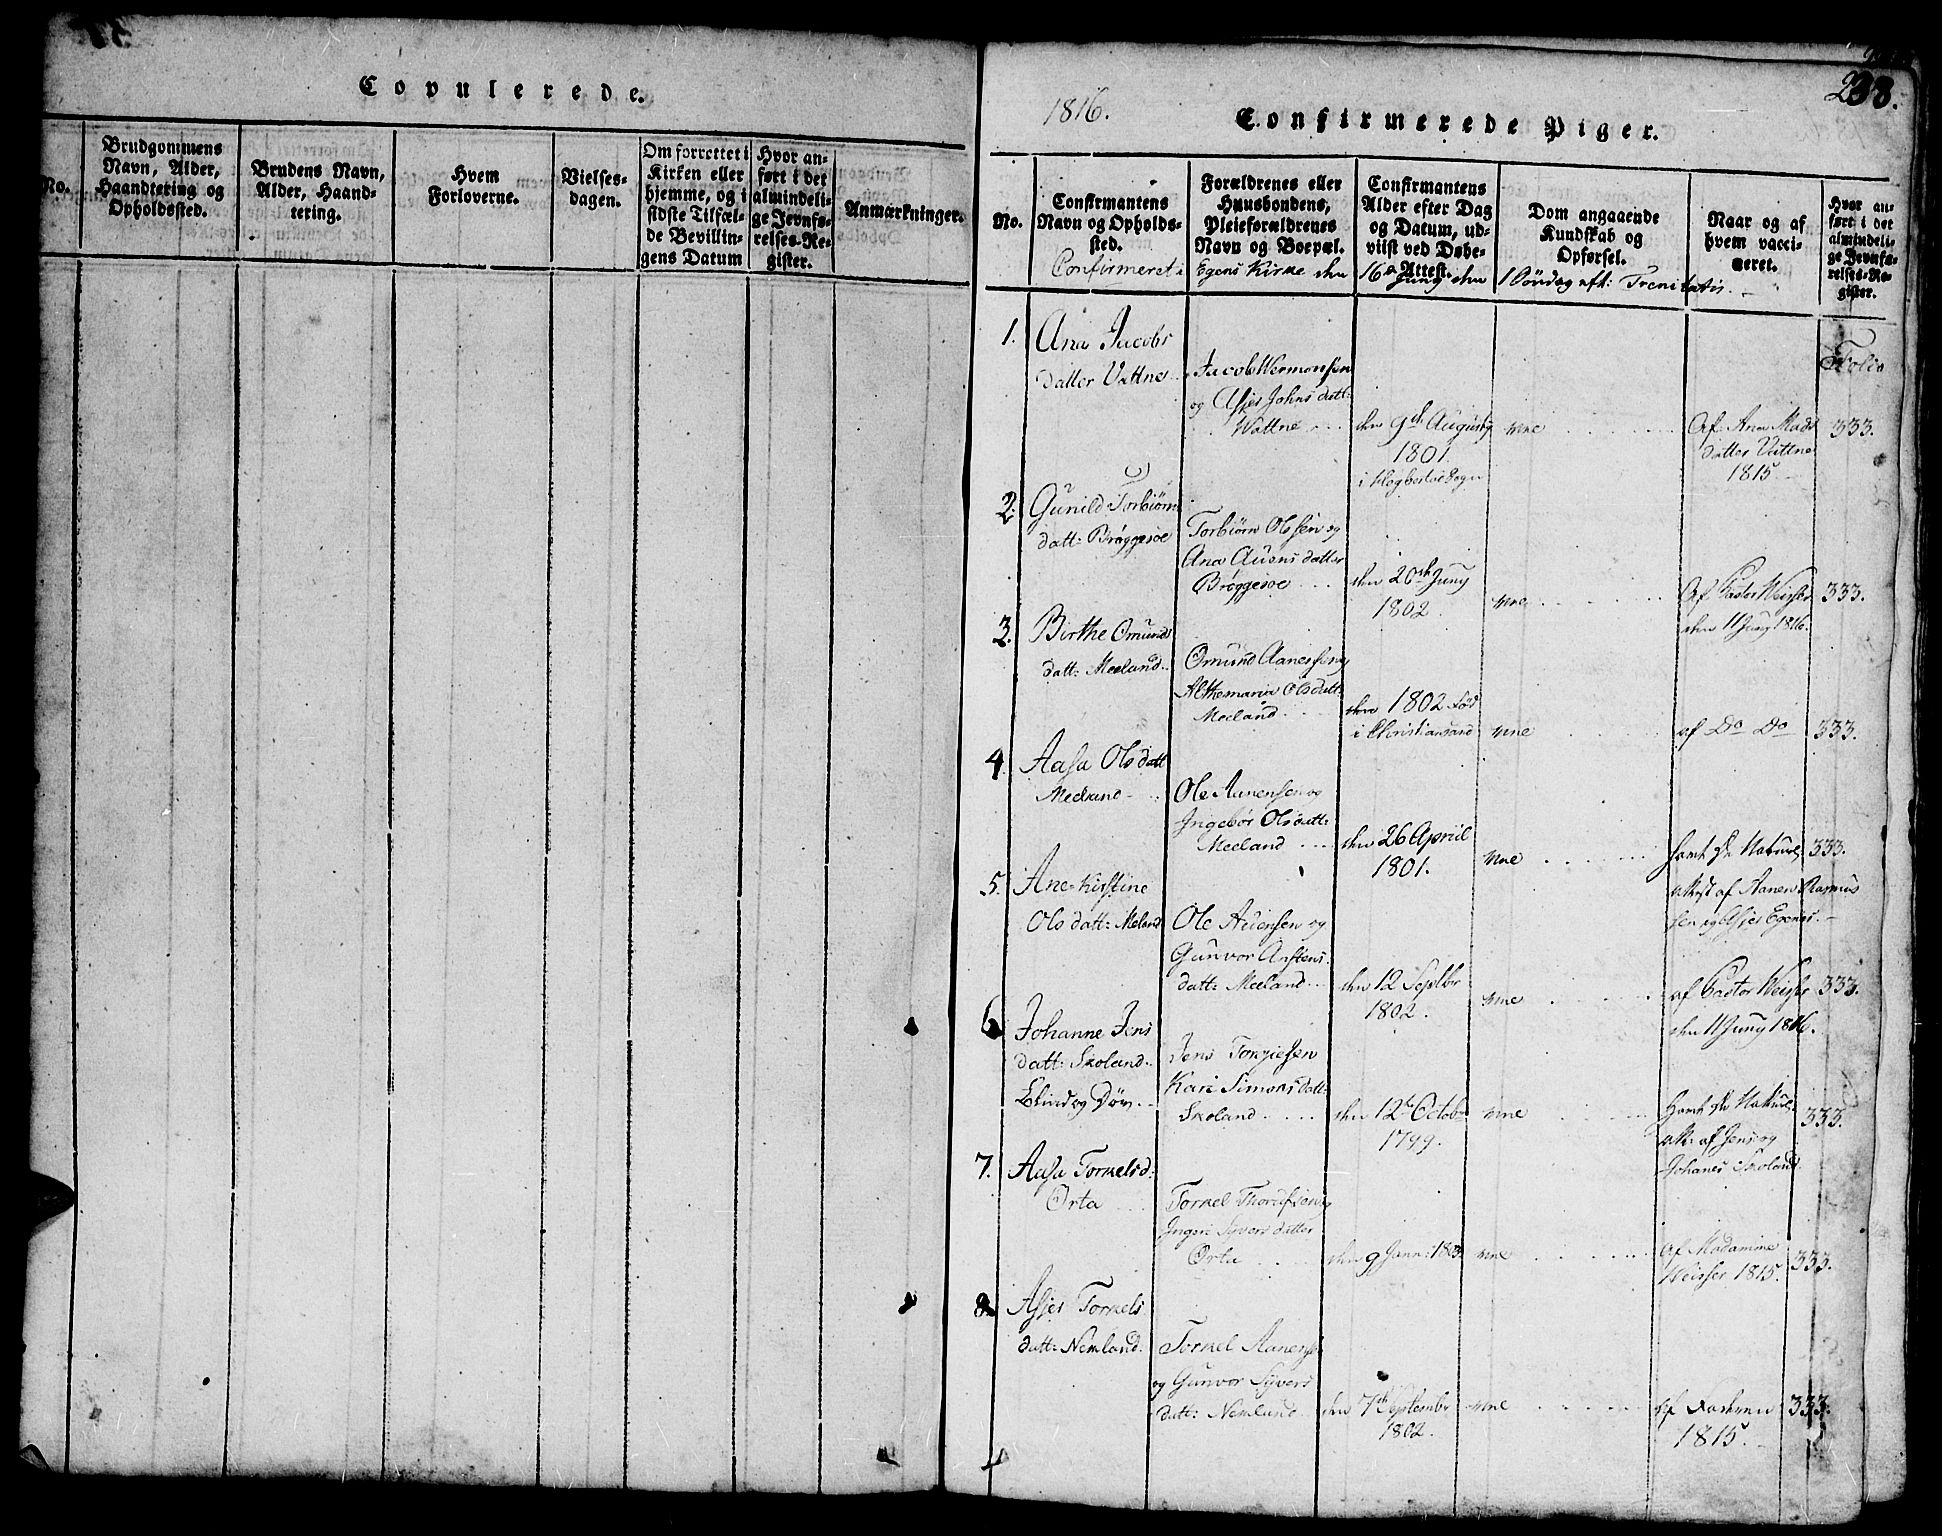 Copulerede.
No.
Brudgommens
Navn, Alder,
Haandtering og
Opholdssted.
Brudens Navn,
Alder, Haand-
tering.
Hvem
Forloverne.
Vielses-
dagen.
Om forrettet i
Kirken eller
hjemme, og i
sidste Tilfæl-
de Bevillin-
gens Datum
Hvor an-
ført i det
almindeli-
ge Jevnfø-
relses-Re-
gister.
Anmærkninger.
238.
1816.
Confirmerede Piger.
No.
Confirmantens
Navn og Opholds-
sted.
Forældrenes eller
Huusbondens,
Pleieforældrenes
Navn og Boepæl.
Confirmantens
Alder efter Dag
og Datum, ud-
viist ved Døbe-
Attest.
Dom angaaende
Kundskab og
Opførsel.
Naar og af
hvem vacci-
neret.
Hvor an-
ført i det
almindeli-
ge Jevnfø-
relses-Re-
gister.
Confirmeret i Egens Kirke den 16de Juny den 1 Søndag eft: Trenitatis.
Folio
1. Ana Jacobs
datter Vattne
Jacob Wermonssen
og Assjer Johns datt:
Wattne
den 9de Augusty
1801.
Af Ana Mads
datter Vattne
1815
333.
2. Gunild Torbiørns
datt: Brøggesoe
Torbiørn Olssen og
Ana Auens datter
Brøggesoe
den 20de Juny
1802.
Af Pastor Weisser
den 11 Juny 1816.
333.
3. Birthe Omunds
datt: Meeland
Omund Aanessen og
Olsdatt:
Meeland
1802 fød
i Christiansand
af Do Do
333.
4. Aasa Olsdatt
Meeland
Ole Aanensen og
Ingebor Olsdatt:
Meeland
den 26 April
1801.
hamt de Naturl.
attest af Aanen Rasmus
sen og Assjer Egenes.
333.
5. Ane Kirstine
Olsdatt: Meland
Ole Adensen og
Gunvor Anstens
datt: Meeland
den 12 Septbr
1802.
af Pastor Weisser
den 11 Juny 1816.
333.
6. Johanne Jens
datt: Skoland
Blind og Døv
Jens Torgiesen
Kari Simonsdatt:
Skoland
den 12te Octobr
1799.
hamt de Naturl.
att: af Jens og
Johanes Skoland
333.
7. Aasa Torkelsd:
Orta
Torkel
Ingeri Syvers datter
Orta
den 9 Jann: 1803
af Madamme
Weisser 1815.
333.
8. Assjer Torkels
datt: Nemland
Torkel Aanense
og Gunvor Syvers
datt: Nemland
den 7de Septembr
1802.
af
1815.
333.